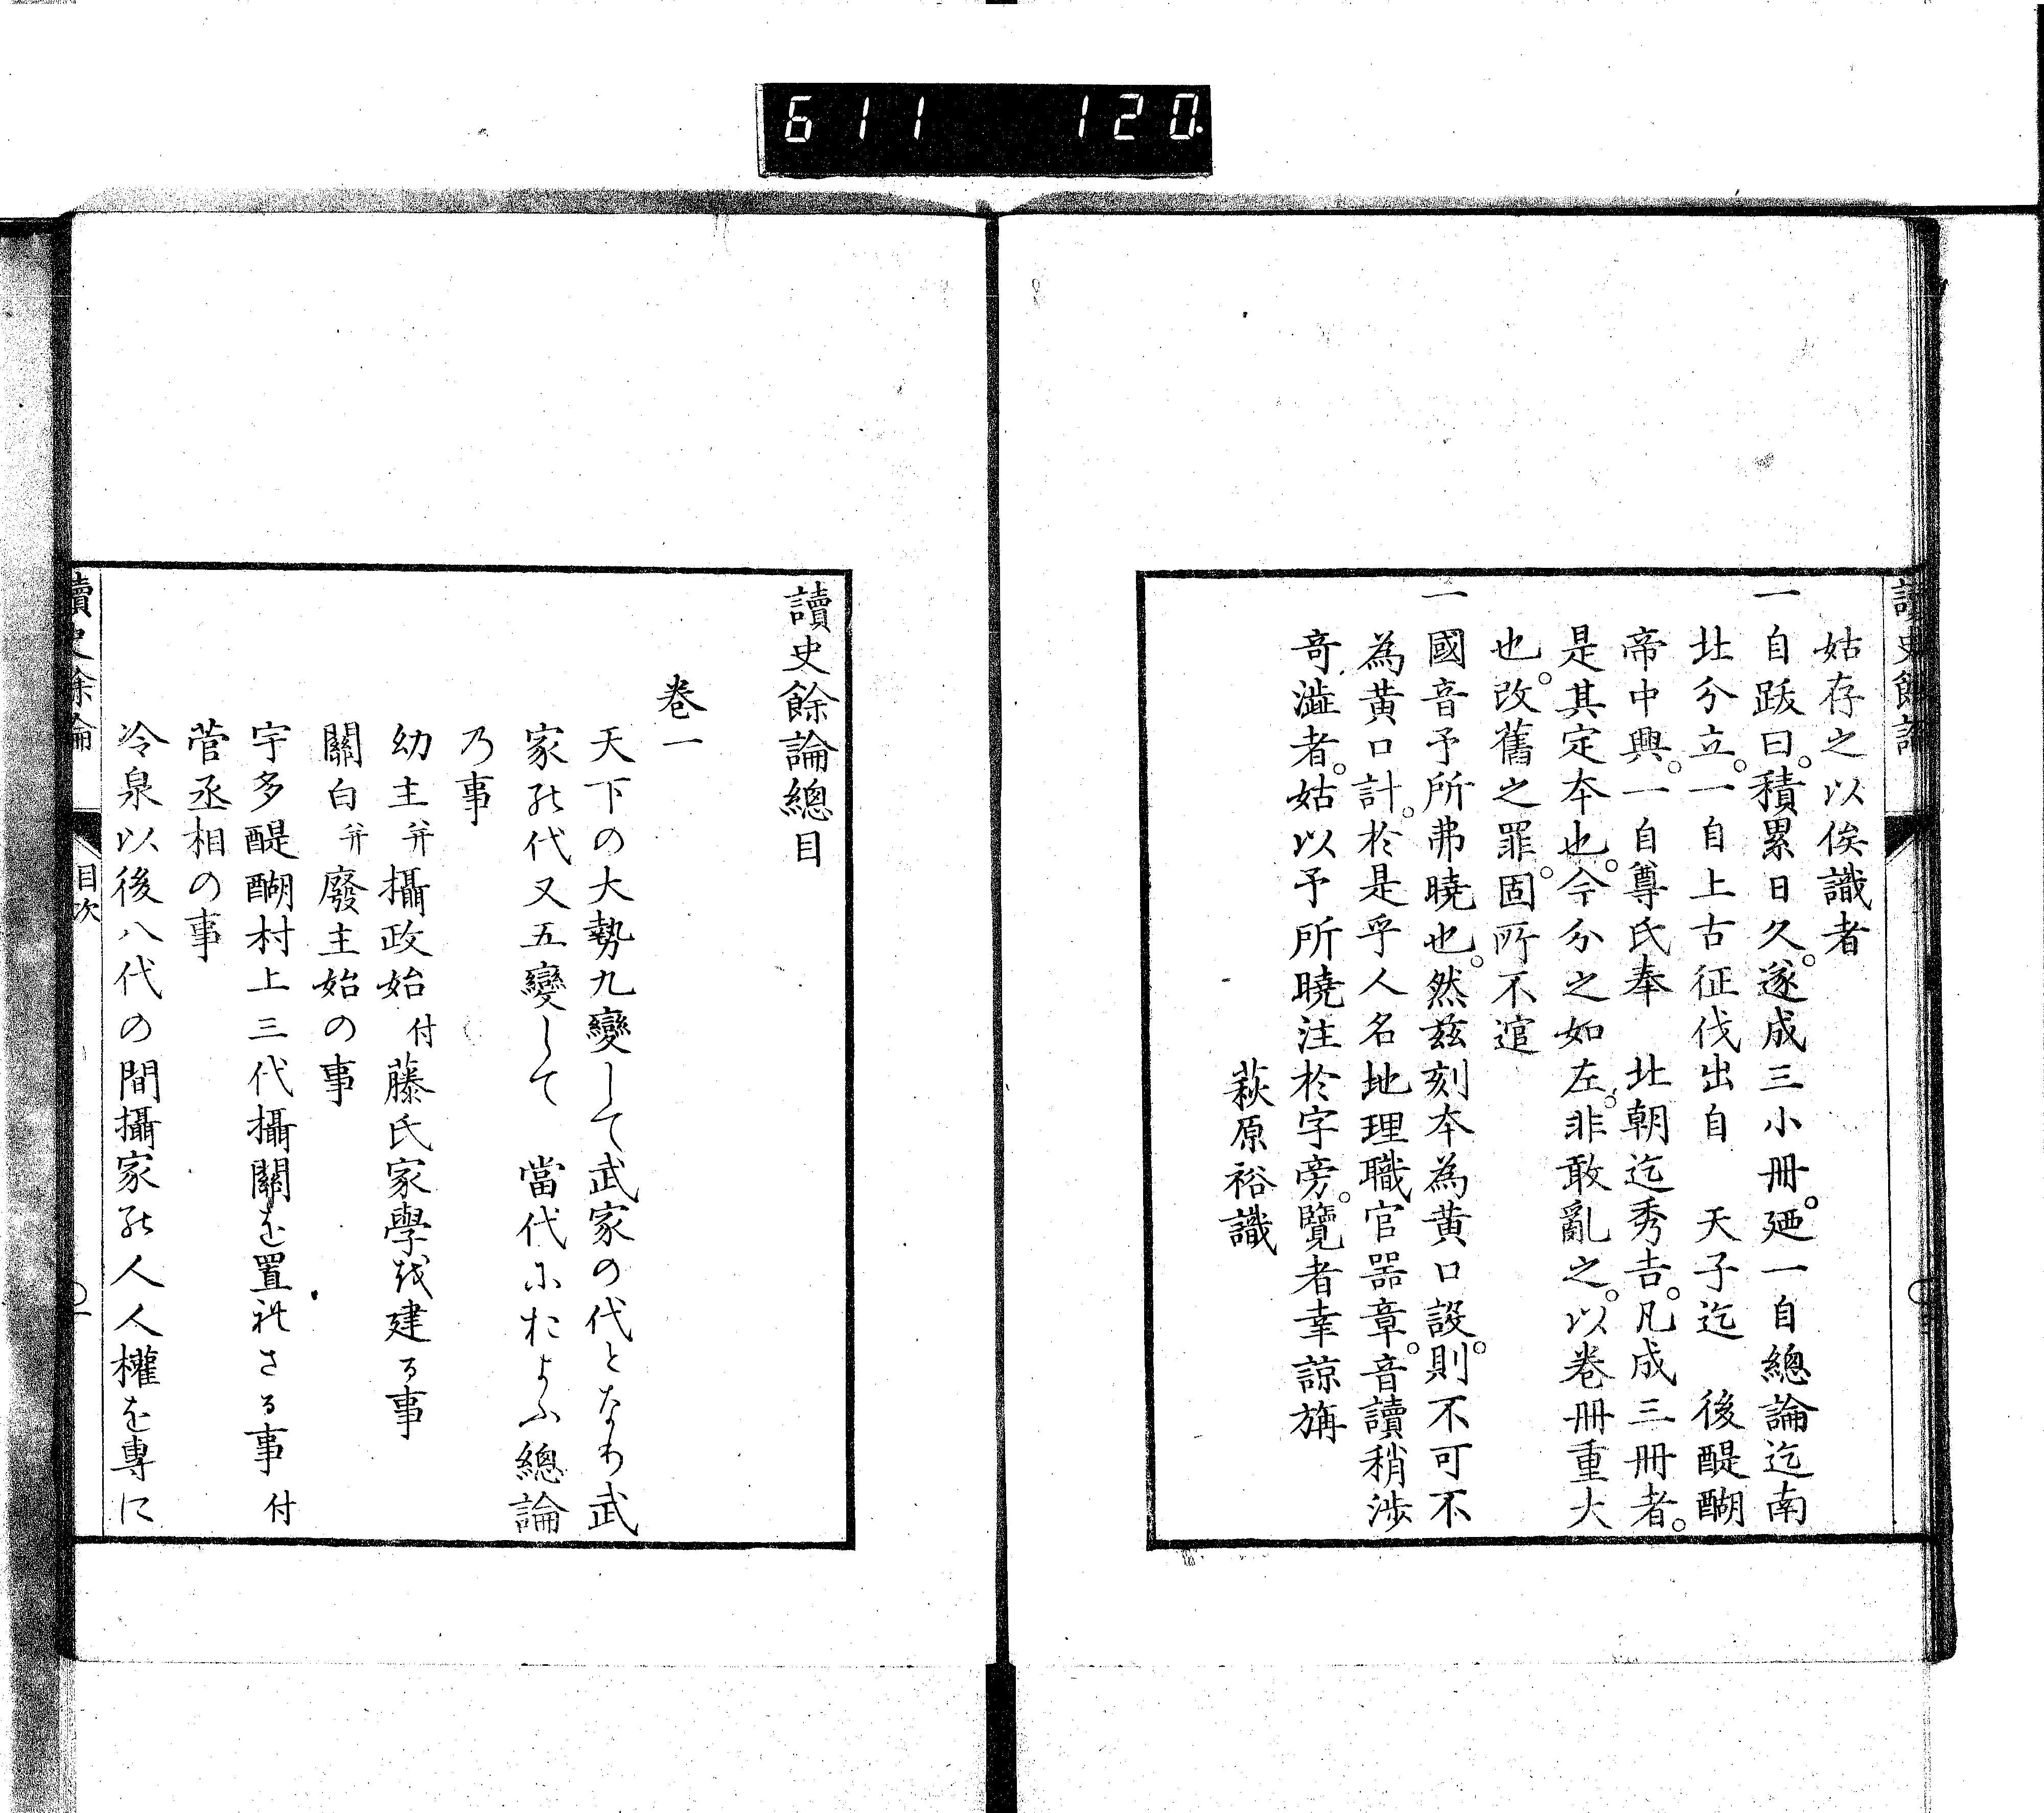 611 120
讀史餘論
姑存之以俟識者
一自跋曰。積累日久。遂成三小冊。廼一自總論迄南
北分立。一自上古征伐出自 天子迄 後醍醐
帝中興。一自尊氏奉 北朝迄秀吉。凡成三冊者。
是其定本也。今分之如左。非敢亂之。以卷冊重大
也。改舊之罪。固所不逭
一國音予所弗曉也。然茲刻本為黄口設。則不可不
為黄口計。於是乎人名地理職官器章。音讀稍渉
奇澁者。姑以予所曉注於字旁。覽者幸諒旃
萩原裕識
讀史餘論總目
卷一
天下の大勢九變して武家の代となり武
家の代又五變して 當代におよふ總論
乃事
幼主并攝政始付藤氏家學を建る事
關白并廢主始の事
宇多醍醐村上三代攝關を置れさる事付
菅丞相の事
冷泉以後八代の間攝家の人人權を專に
讀史餘論
目次
一